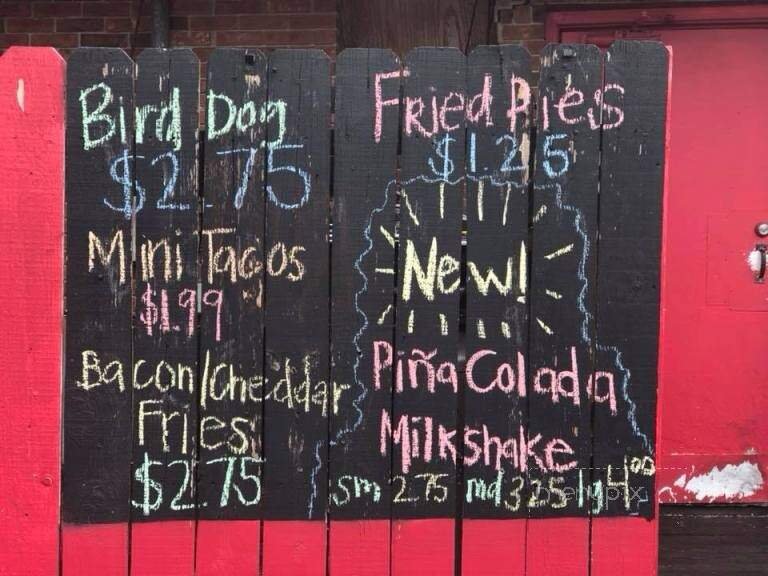 Bird Dog
$2.75
Mini Tacos
$1.99
Bacon/Cheddar
Fries
$2.75
Fried Pies
$1.25
New!
Piña Colada
Milkshake
sm 2.75 md 3.25 lg 4.00